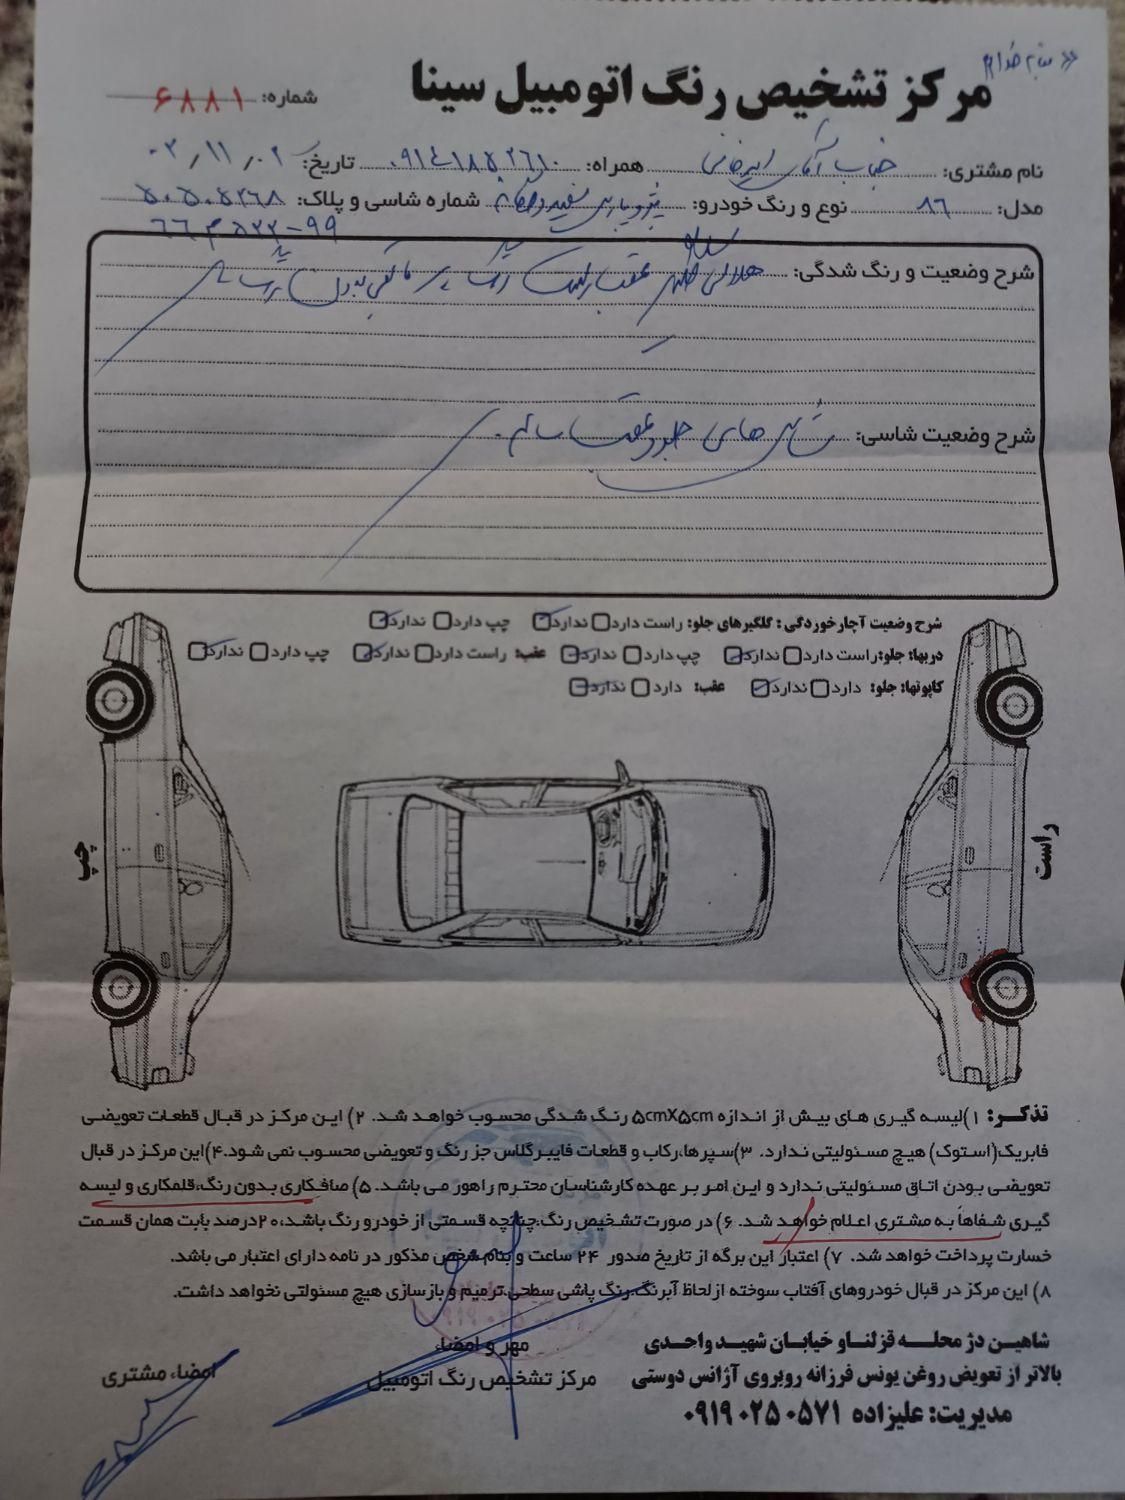 مرکز تشخیص رنگ اتومبیل سینا
شماره: ۶۸۸۱
نام مشتری: جناب آقای همراه: تاریخ: ۰۲/۱۱/۰۲
مدل: ۸۶ نوع و رنگ خودرو: شماره شاسی و پلاک: ۵۰۵۰۵۲۶۸
شرح وضعیت و رنگ شدگی:
شرح وضعیت شاسی: شاسی های جلو و عقب سالم.
شرح وضعیت آچارخوردگی: گلگیرهای جلو: راست دارد ندارد چپ دارد ندارد
دربها: جلو: راست دارد ندارد چپ دارد ندارد عقب: راست دارد ندارد چپ دارد ندارد
کاپوتها: جلو: دارد ندارد عقب: دارد ندارد
چپ
راست
تذکر: ۱)لیسه گیری های بیش از اندازه ۵cmX۵cm رنگ شدگی محسوب خواهد شد. ۲) این مرکز در قبال قطعات تعویضی
فابریک(استوک) هیچ مسئولیتی ندارد. ۳)سپرها،رکاب و قطعات فایبرگلاس جز رنگ و تعویضی محسوب نمی شود.۴)این مرکز در قبال
تعویضی بودن اتاق مسئولیتی ندارد و این امر بر عهده کارشناسان محترم راهور می باشد. ۵) صافکاری بدون رنگ،قلمکاری و لیسه
گیری شفاهاً به مشتری اعلام خواهد شد. ۶) در صورت تشخیص رنگ،چنانچه قسمتی از خودرو رنگ باشد،۲۰درصد بابت همان قسمت
خسارت پرداخت خواهد شد. ۷) اعتبار این برگه از تاریخ صدور ۲۴ ساعت و بنام شخص مذکور در نامه دارای اعتبار می باشد.
۸) این مرکز در قبال خودروهای آفتاب سوخته ازلحاظ آبرنگ،رنگ پاشی سطحی،ترمیم و بازسازی هیچ مسئولتی نخواهد داشت.
شاهین دژ محله قزلناو خیابان شهید واحدی
بالاتر از تعویض روغن یونس فرزانه روبروی آژانس دوستی
مدیریت: علیزاده ۰۹۱۹۰۲۵۰۵۷۱
مهر و امضاء
مرکز تشخیص رنگ اتومبیل
امضاء مشتری